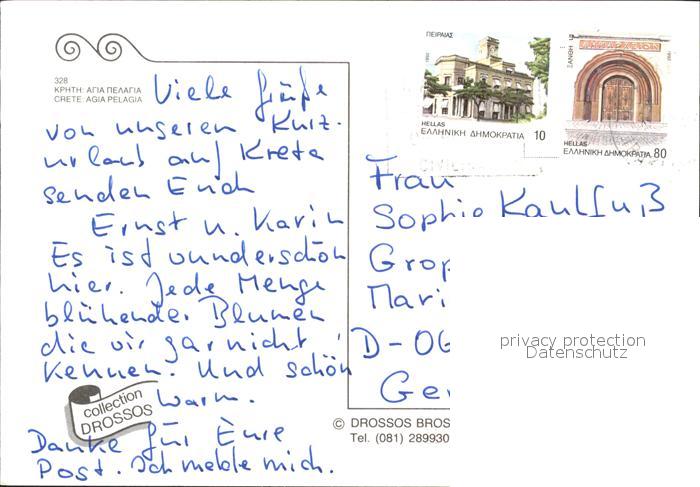 328
ΚΡΗΤΗ: ΑΓΙΑ ΠΕΛΑΓΙΑ
CRETE: AGIA PELAGIA
Viele Grüße
von unseren Kurz-
urlaub auf Kreta
senden Euch
Ernst u. Karin
Es ist wunderschön
hier. Jede Menge
blühender Blumen
die wir gar nicht
kennen. Und schön
warm.
Danke für Eure
Post. Ich melde mich.
collection
DROSSOS
ΠΕΙΡΑΙΑΣ
HELLAS
ΕΛΛΗΝΙΚΗ ΔΗΜΟΚΡΑΤΙΑ 10
ΞΑΝΘΗ
HELLAS
ΕΛΛΗΝΙΚΗ ΔΗΜΟΚΡΑΤΙΑ 80
Frau
Sophie Kaulfuß
Grop
Mari
D-06
Ger
© DROSSOS BROS
Tel. (081) 289930
privacy protection
Datenschutz